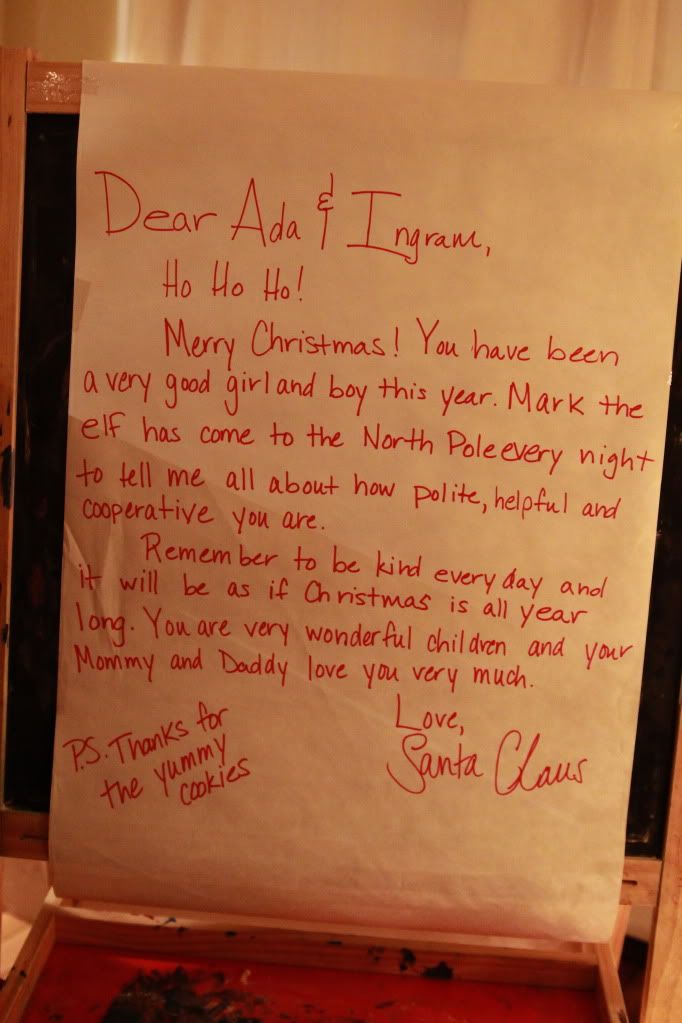 Dear Ada & Ingram,
Ho Ho Ho!
Merry Christmas! You have been
a very good girl and boy this year. Mark the
elf has come to the North Pole every night
to tell me all about how polite, helpful and
cooperative you are.
Remember to be kind every day and
it will be as if Christmas is all year
long. You are very wonderful children and your
Mommy and Daddy love you very much.
Love,
Santa Claus
P.S. Thanks for
the yummy
cookies